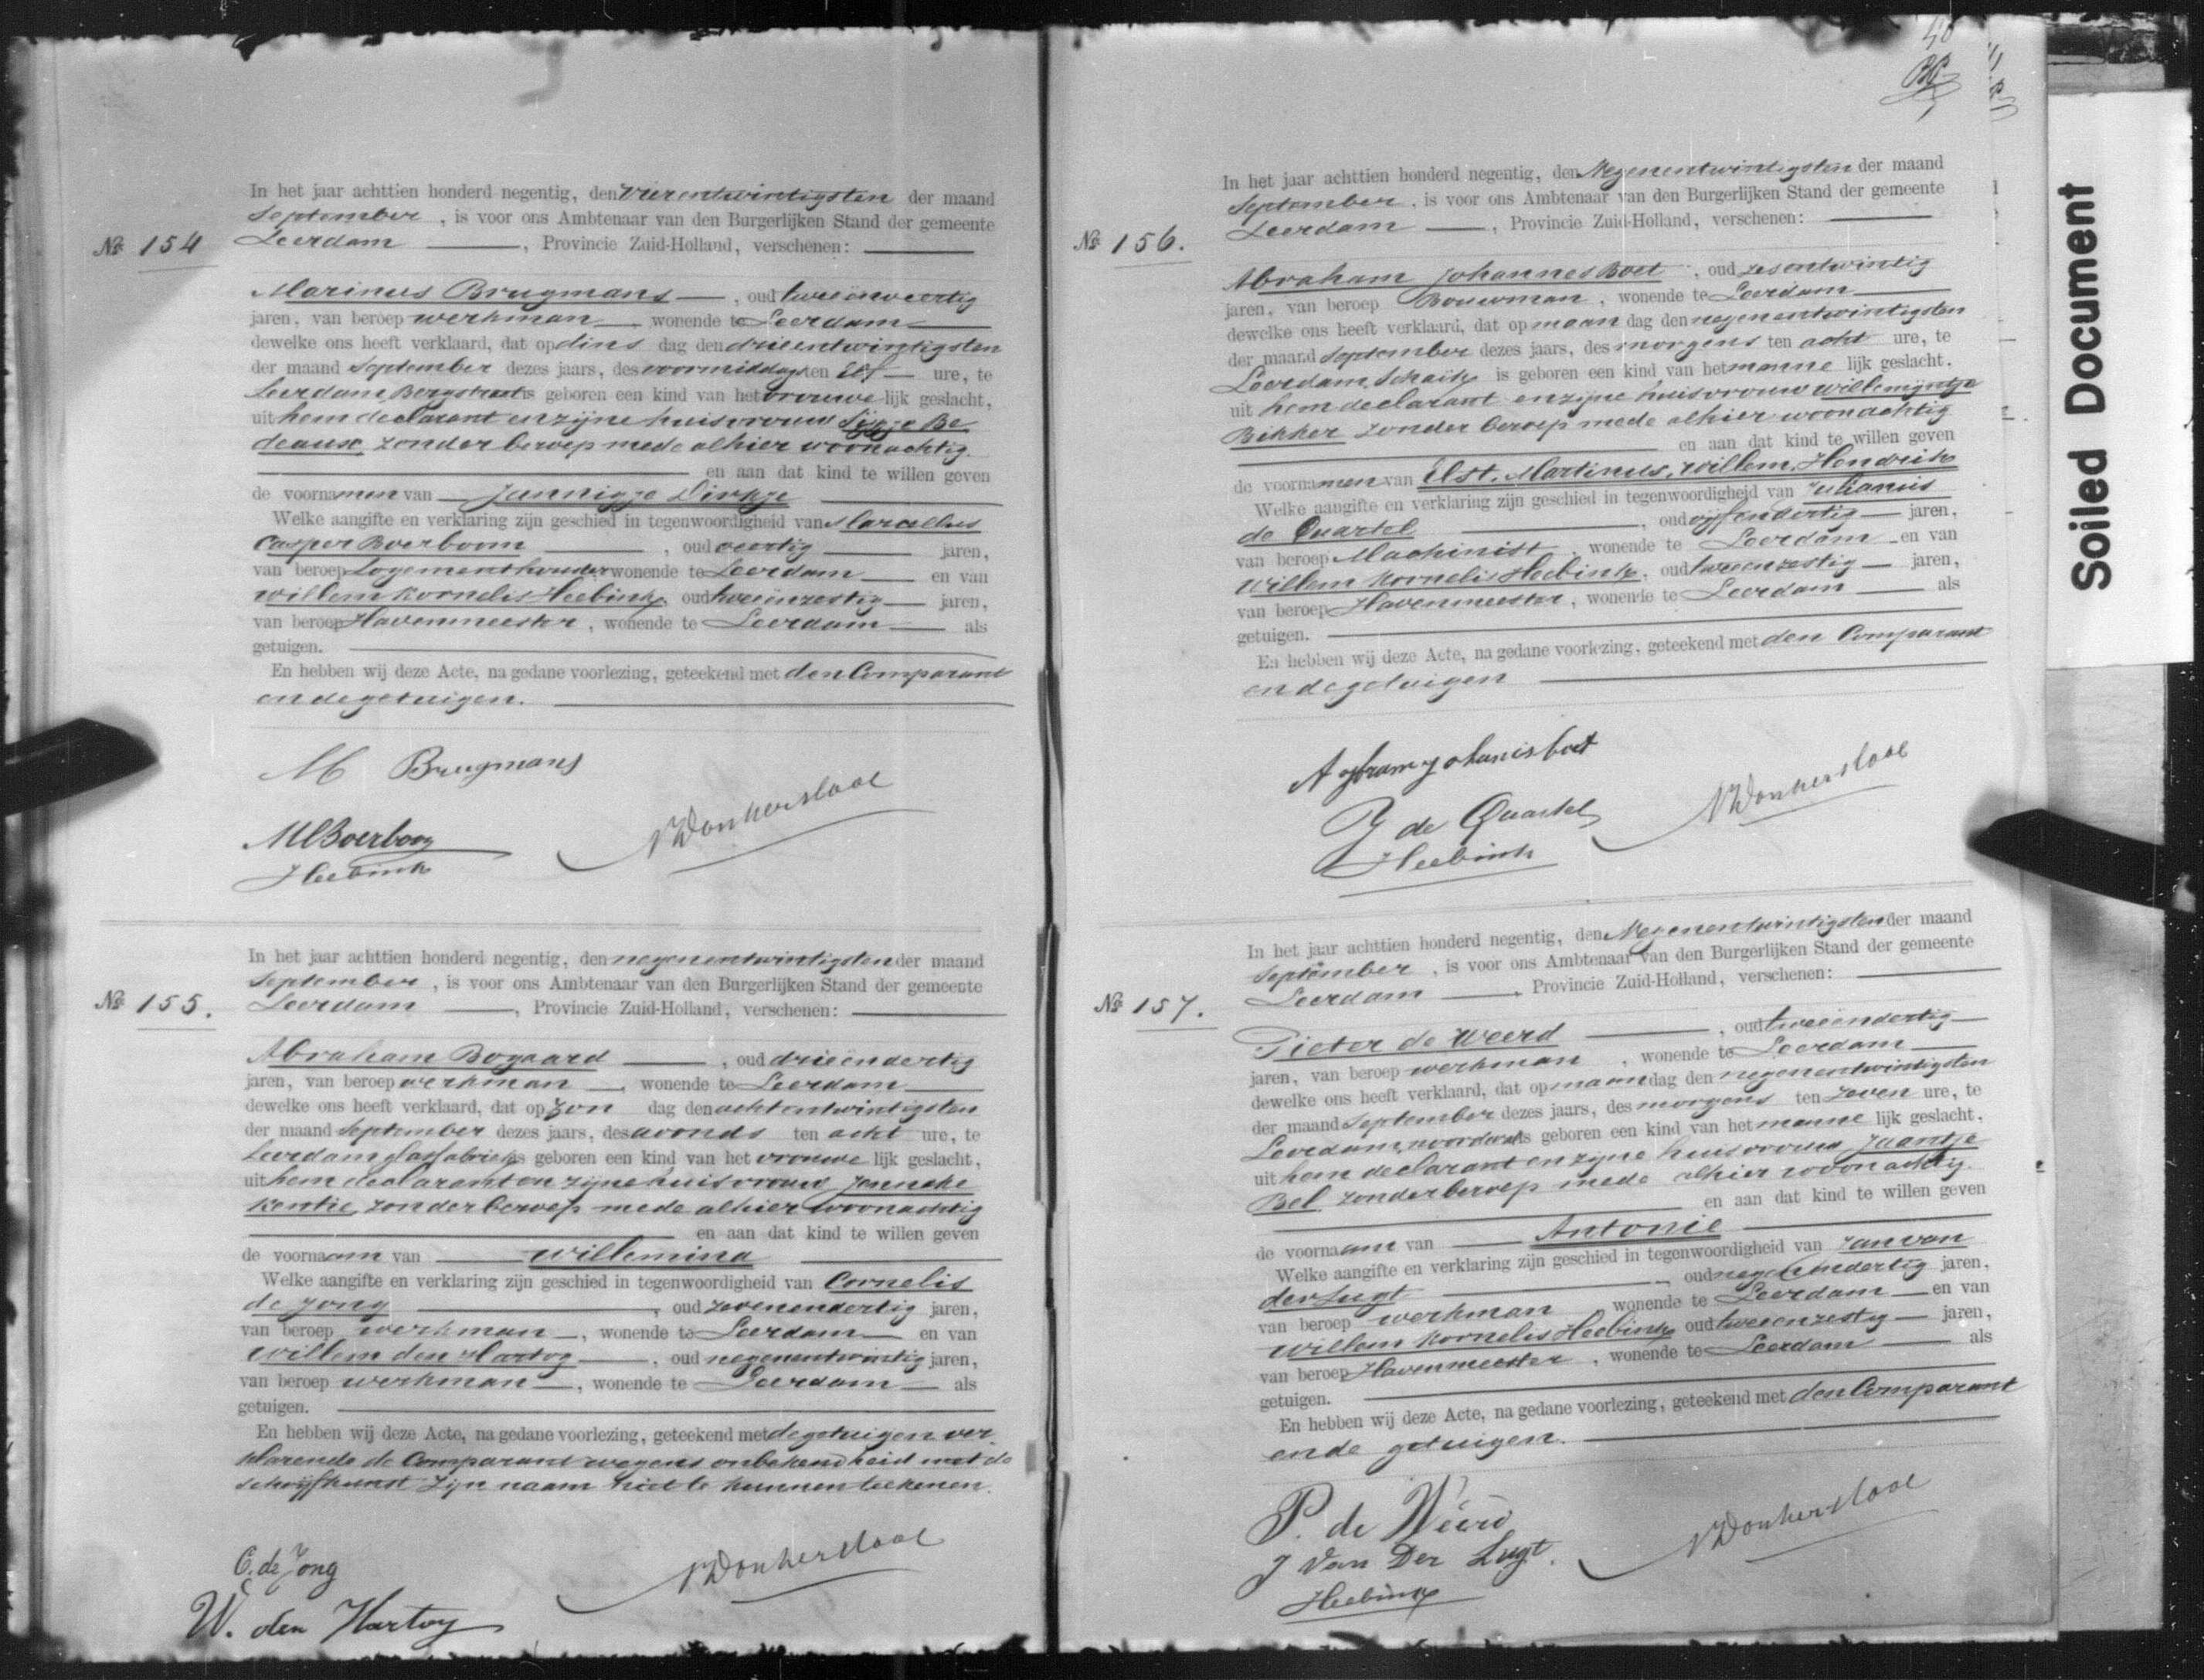 In het jaar achttien honderd negentig, den Vierentwintigsten der maand
September, is voor ons Ambtenaar van den Burgerlijken Stand der gemeente
No 154 Leerdam, Provincie Zuid-Holland, verschenen:
Marinus Brugmans, oud tweeënveertig
jaren, van beroep werkman wonende te Leerdam
dewelke ons heeft verklaard, dat op dins dag den drieentwintigsten
der maand September dezes jaars, des voormiddags ten Elf ure, te
Leerdam, Bergstraat is geboren een kind van het vrouwe lijk geslacht,
uit hem declarant en zijne huisvrouw Sijgje Be
deaux, zonder beroep mede alhier woonachtig.
en aan dat kind te willen geven
de voornamen van Jannigje Dirkje
Welke aangifte en verklaring zijn geschied in tegenwoordigheid van Marcellus
Casper Boerboom, oud veertig jaren,
van beroep Logementhouder wonende te Leerdam en van
Willem Kornelis Heebink, oud tweeënzestig jaren,
van beroep Havenmeester, wonende te Leerdam als
getuigen.
En hebben wij deze Acte, na gedane voorlezing, geteekend met den Comparant
en de getuigen.
M Brugmans
NDonkersloot
MCBoerboom
Heebink
In het jaar achttien honderd negentig, den negenentwintigsten der maand
September, is voor ons Ambtenaar van den Burgerlijken Stand der gemeente
No 155. Leerdam, Provincie Zuid-Holland, verschenen:
Abraham Bogaard, oud drieëndertig
jaren, van beroep werkman, wonende te Leerdam
dewelke ons heeft verklaard, dat op Zon dag den achtentwintigsten
der maand September dezes jaars, des avonds ten acht ure, te
Leerdam Glasfabriek is geboren een kind van het vrouwe lijk geslacht,
uit hem declarant en zijne huisvrouw Jenneke
Kentie, zonder beroep mede alhier woonachtig
en aan dat kind te willen geven
de voornaam van Willemina
Welke aangifte en verklaring zijn geschied in tegenwoordigheid van Cornelis
de Jong, oud zevenendertig jaren,
van beroep werkman, wonende te Leerdam en van
Willem den Hartog, oud negenentwintig jaren,
van beroep werkman, wonende te Leerdam als
getuigen.
En hebben wij deze Acte, na gedane voorlezing, geteekend met de getuigen ver
klarende de Comparant wegens onbekendheid met de
schrijfkunst zijn naam niet te kunnen teekenen.
C. de Jong
NDonkersloot
W. den Hartog
40
In het jaar achttien honderd negentig, den Negenentwintigsten der maand
September, is voor ons Ambtenaar van den Burgerlijken Stand der gemeente
No 156. Leerdam, Provincie Zuid-Holland, verschenen:
Abraham Johannes Boet, oud zesentwintig
jaren, van beroep Bouwman, wonende te Leerdam
dewelke ons heeft verklaard, dat op maan dag den negenentwintigsten
der maand September dezes jaars, des morgens ten acht ure, te
Leerdam, Schaik is geboren een kind van het manne lijk geslacht,
uit hem declarant en zijne huisvrouw Willemijntje
Bikker zonder beroep mede alhier woonachtig
en aan dat kind te willen geven
de voornamen van Elst, Martinus, Willem, Hendrik
Welke aangifte en verklaring zijn geschied in tegenwoordigheid van Julianus
de Quartel, oud vijfendertig jaren,
van beroep Machinist, wonende te Leerdam en van
Willem Kornelis Heebink, oud tweeenzestig jaren,
van beroep Havenmeester, wonende te Leerdam als
getuigen.
En hebben wij deze Acte, na gedane voorlezing, geteekend met den Comparant
en de getuigen
NDonkersloot
J de Quartel
Heebink
In het jaar achttien honderd negentig, den Negenentwintigsten der maand
September, is voor ons Ambtenaar van den Burgerlijken Stand der gemeente
No 157. Leerdam, Provincie Zuid-Holland, verschenen:
Pieter de Weerd, oud tweeëndertig
jaren, van beroep werkman, wonende te Leerdam
dewelke ons heeft verklaard, dat op maan dag den negenentwintigsten
der maand September dezes jaars, des morgens ten zeven ure, te
Leerdam, is geboren een kind van het manne lijk geslacht,
uit hem declarant en zijne huisvrouw Jaantje
Bel zonder beroep mede alhier woonachtig.
en aan dat kind te willen geven
de voornaam van Antonie
Welke aangifte en verklaring zijn geschied in tegenwoordigheid van Jan van
der Lugt oud negenendertig jaren,
van beroep werkman wonende te Leerdam en van
Willem Kornelis Heebink oud tweeenzestig jaren,
van beroep Havenmeester, wonende te Leerdam als
getuigen.
En hebben wij deze Acte, na gedane voorlezing, geteekend met den Comparant
en de getuigen.
P. de Weerd
NDonkersloot
J Van Der Lugt.
Heebink
Soiled Document